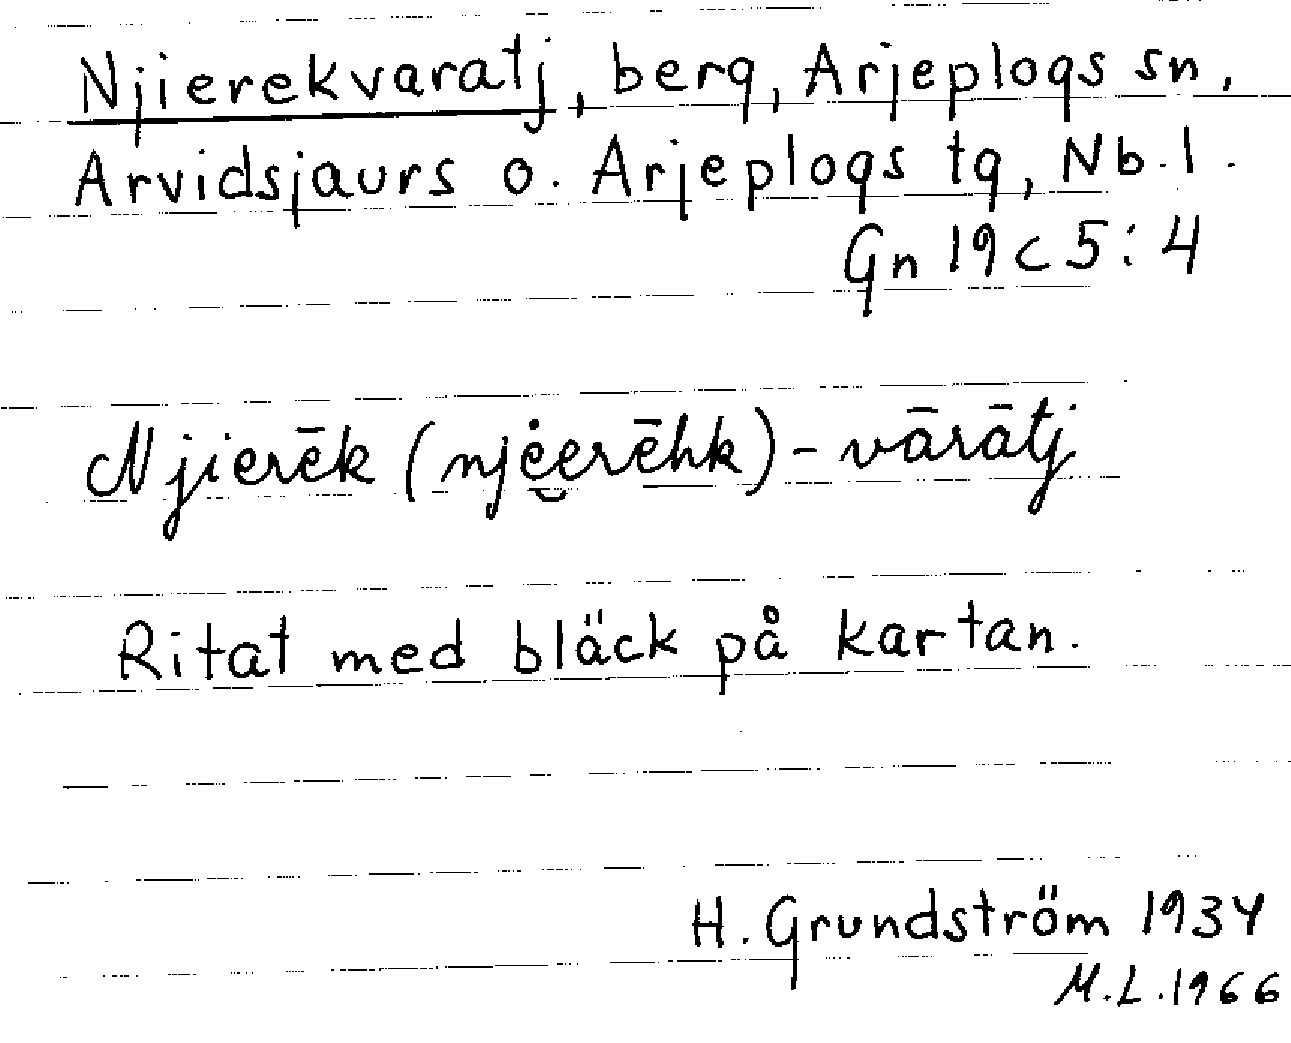 Njierekvaratj, berg, Arjeplogs sn,
Arvidsjaurs o. Arjeplogs tg, Nb.l.
Gn 19 c 5:4
Njierēk (njė̮erēhk) - vārātj
Ritat med bläck på kartan.
H. Grundström 1934
M.L. 1966